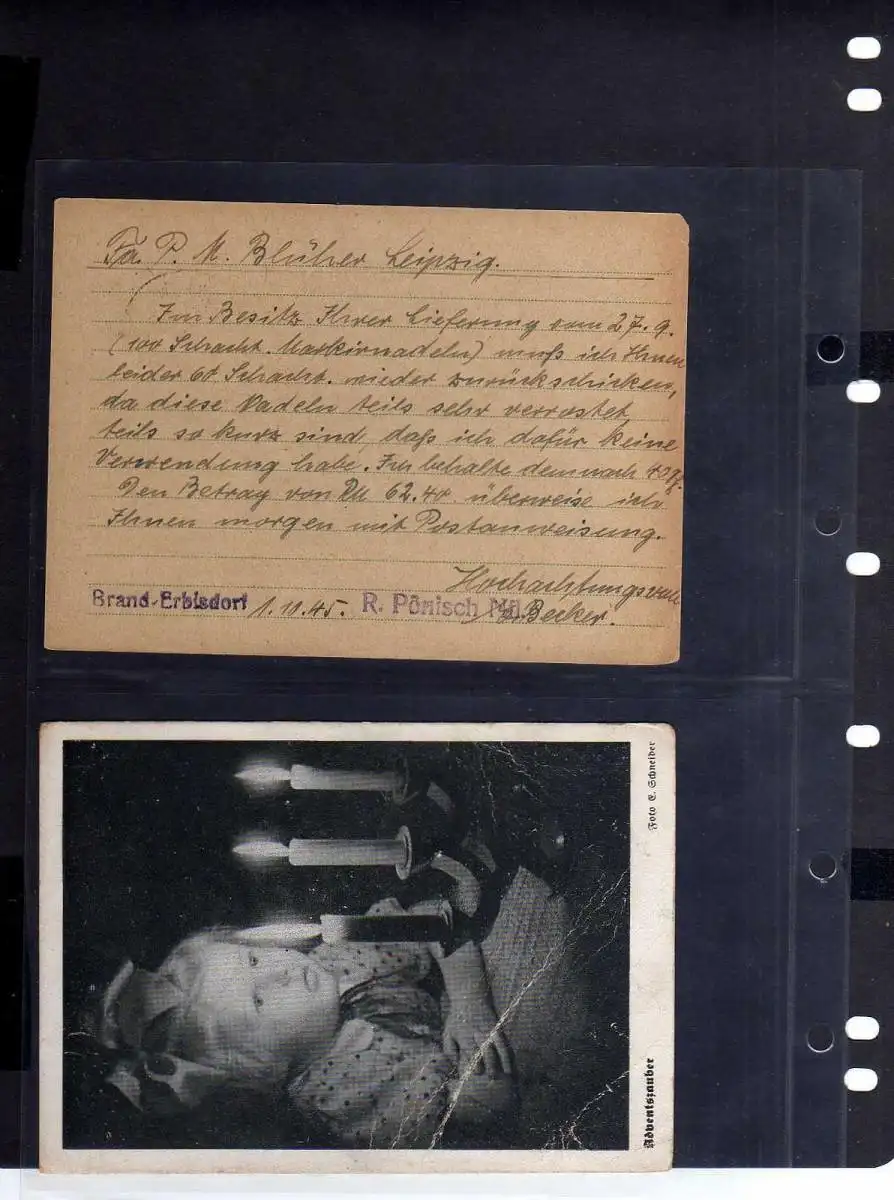 Fa. P. M. Blüher Leipzig.
Im Besitz Ihrer Lieferung vom 27.9.
(100 Schacht. Markirnadeln) muß ich Ihnen
leider 60 Schacht. wieder zurückschicken,
da diese Nadeln teils sehr verrostet,
teils so kurz sind, daß ich dafür keine
Verwendung habe. Ich behalte demnach
Den Betrag von RM 62.40 überweise ich
Ihnen morgen mit Postanweisung.
Hochachtungsvoll
Brand-Erbisdorf 1.10.45. R. Pönisch Nfl.
Becker.
Foto E. Schneider
Adventszauber